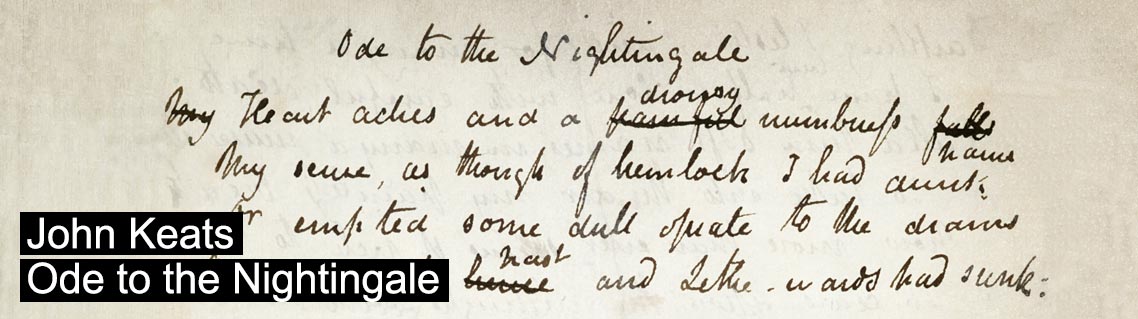 Ode to the Nightingale
drowsy
My Heart aches and a painful numbneſs falls
pains
My sense, as though of hemlock I had drunk.
Or empted some dull opiate to the drains
past
hence and Lethe-wards had sunk:
John Keats
Ode to the Nightingale